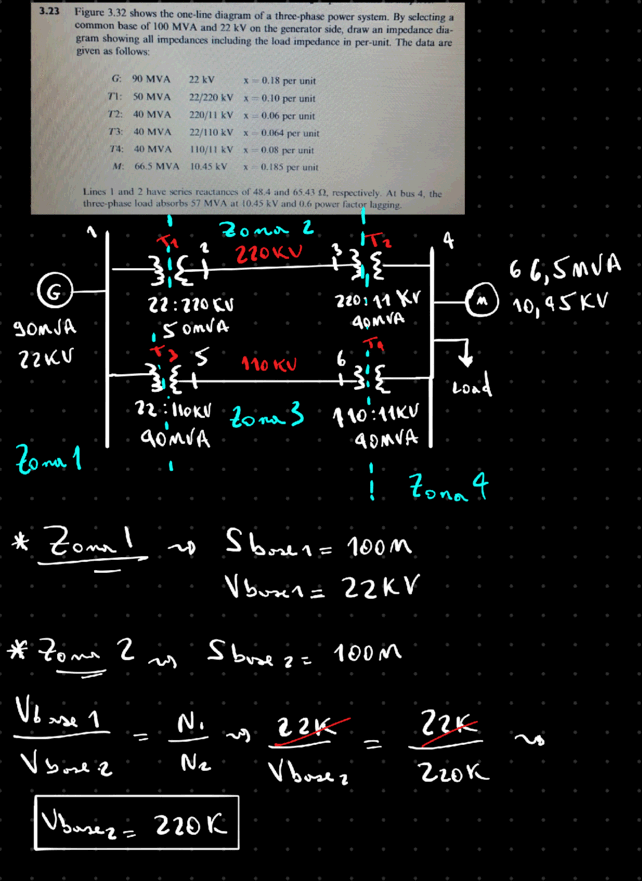 3.23 Figure 3.32 shows the one-line diagram of a three-phase power system. By selecting a
common base of 100 MVA and 22 kV on the generator side, draw an impedance dia-
gram showing all impedances including the load impedance in per-unit. The data are
given as follows:
G: 90 MVA 22 kV x = 0.18 per unit
T1: 50 MVA 22/220 kV x = 0.10 per unit
T2: 40 MVA 220/11 kV x = 0.06 per unit
T3: 40 MVA 22/110 kV x = 0.064 per unit
T4: 40 MVA 110/11 kV x = 0.08 per unit
M: 66.5 MVA 10.45 kV x = 0.185 per unit
Lines 1 and 2 have series reactances of 48.4 and 65.43 Ω, respectively. At bus 4, the
three-phase load absorbs 57 MVA at 10.45 kV and 0.6 power factor lagging.
Zona 2
1 T1 2 220KV 3 T2 4
G
M
66,5MVA
10,45KV
22:220KV
220:11 KV
90MVA
50MVA
40MVA
22KV
T3 5 110KV 6 T4
Load
22:110KV
Zona 3
110:11KV
40MVA
40MVA
Zona 1
Zona 4
* Zona 1 ⇝ Sbase1 = 100M
Vbase1 = 22KV
* Zona 2 ⇝ Sbase2 = 100M
Vbase1 / Vbase2 = N1 / N2 ⇝ 22K / Vbase2 = 22K / 220K ⇝
Vbase2 = 220K